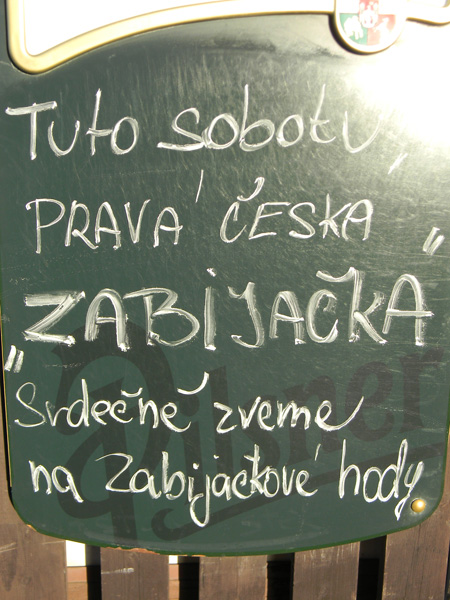 Tuto sobotu,
PRAVÁ ČESKÁ
„ZABIJAČKA"
Srdečně zveme
na zabijačkové hody
Pilsner